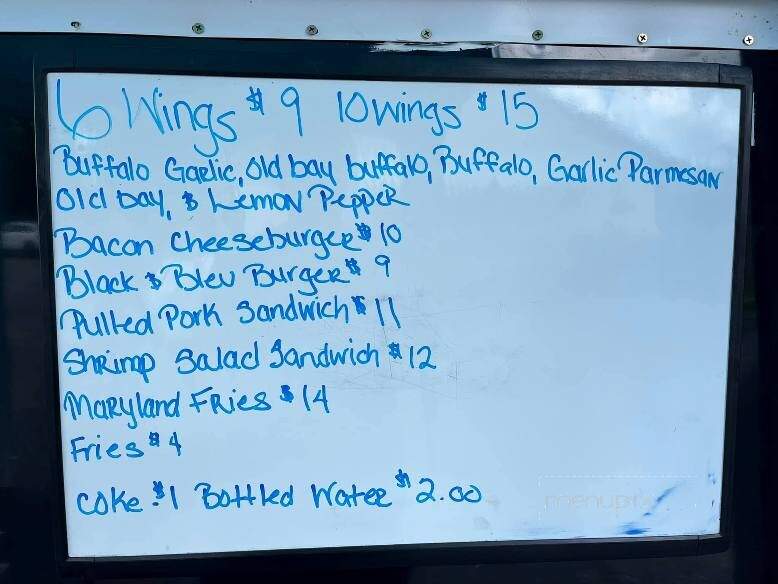 6 Wings $9 10 wings $15
Buffalo Garlic, Old bay buffalo, Buffalo, Garlic Parmesan
Old bay, & Lemon Pepper
Bacon cheeseburger $10
Black & Bleu Burger $9
Pulled Pork Sandwich $11
Shrimp Salad Sandwich $12
Maryland Fries $14
Fries $4
Coke $1 Bottled Water $2.00